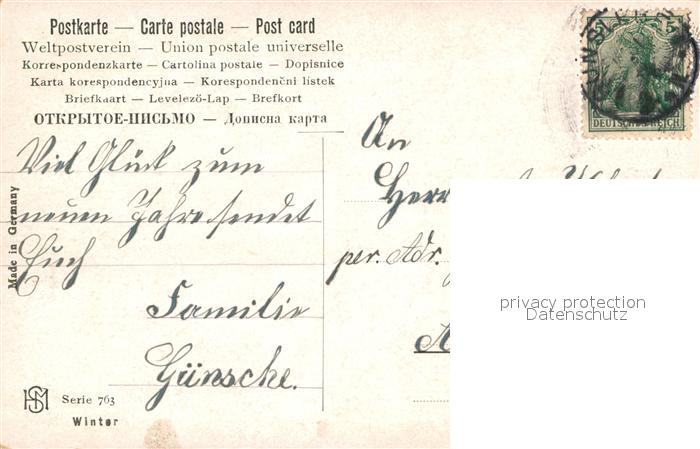 Postkarte — Carte postale — Post card
Weltpostverein — Union postale universelle
Korrespondenzkarte — Cartolina postale — Dopisnice
Karta korespondencyjna — Korespondenční lístek
Briefkaart — Levelező-Lap — Brefkort
ОТКРЫТОЕ-ПИСЬМО — Дописна карта
DEUTSCHES REICH
Viel Glück zum
neuen Jahre sendet
Euch
Familie
Günsche.
Made in Germany
HSM
Serie 763
Winter
An
Herr
per. Adr.
privacy protection
Datenschutz